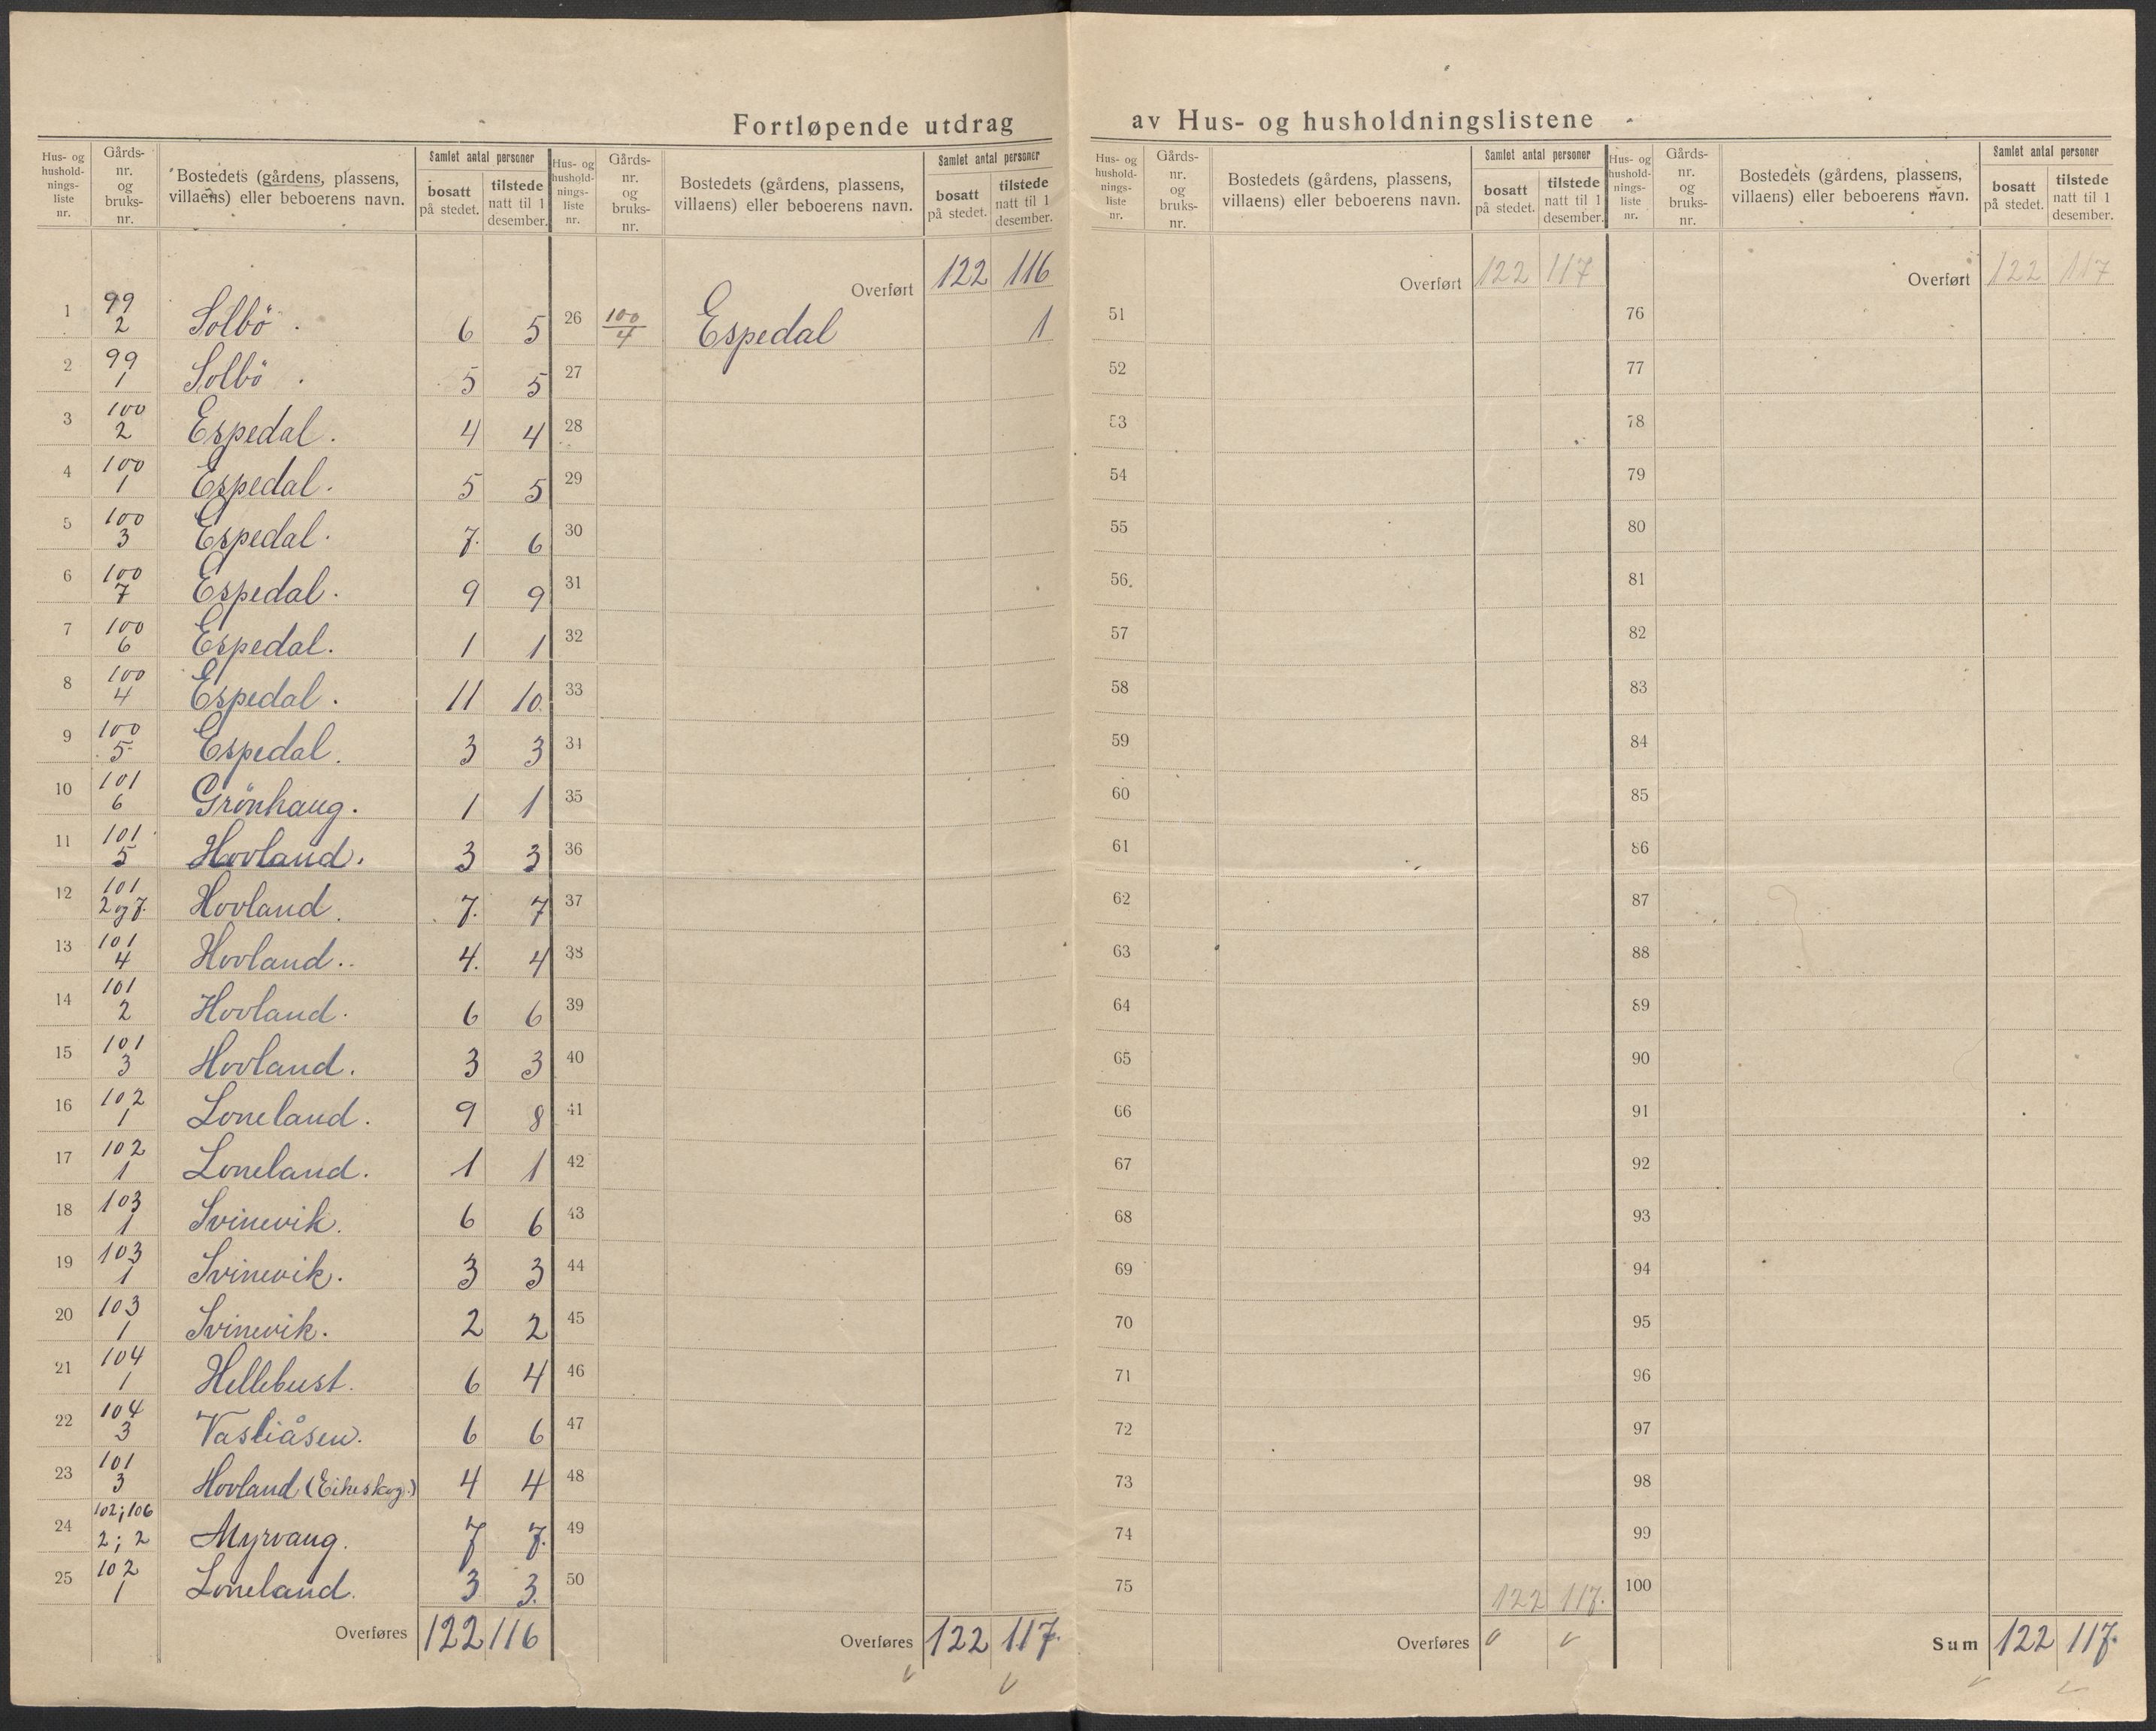 Fortløpende utdrag av Hus- og husholdningslistene
Hus- og hushold-nings-liste nr. Gårds-nr. og bruks-nr. Bostedets (gårdens, plassens, villaens) eller beboerens navn. Samlet antal personer bosatt på stedet. tilstede natt til 1 desember.
1 99/2 Solbö . 6 5
2 99/1 Solbö . 5 5
3 100/2 Espedal. 4 4
4 100/1 Espedal. 5 5
5 100/3 Espedal. 7. 6
6 100/7 Espedal. 9 9
7 100/6 Espedal. 1 1
8 100/4 Espedal. 11 10.
9 100/5 Espedal. 3 3
10 101/6 Grönhaug. 1 1
11 101/5 Hovland. 3 3
12 101/2 og 7. Hovland. 7. 7
13 101/4 Hovland.. 4. 4
14 101/2 Hovland. 6 6
15 101/3 Hovland. 3 3
16 102/1 Loneland. 9 8
17 102/1 Loneland. 1 1
18 103/1 Svinevik. 6 6
19 103/1 Svinevik. 3 3
20 103/1 Svinevik. 2 2
21 104/1 Hellebust. 6 4
22 104/3 Vasliåsen. 6 6
23 101/3 Hovland (Eikeskog.) 4 4
24 102; 106 / 2; 2 Myrvang. 7 7.
25 102/1 Loneland. 3 3.
Overføres 122 116
Hus- og hushold-nings-liste nr. Gårds-nr. og bruks-nr. Bostedets (gårdens, plassens, villaens) eller beboerens navn. Samlet antal personer bosatt på stedet. tilstede natt til 1 desember.
Overført 122 116
26 100/4 Espedal 1
27
28
29
30
31
32
33
34
35
36
37
38
39
40
41
42
43
44
45
46
47
48
49
50
Overføres 122 117.
Hus- og hushold-nings-liste nr. Gårds-nr. og bruks-nr. Bostedets (gårdens, plassens, villaens) eller beboerens navn. Samlet antal personer bosatt på stedet. tilstede natt til 1 desember.
Overført 122 117
51
52
53
54
55
56.
57
58
59
60
61
62
63
64
65
66
67
68
69
70
71
72
73
74
75 122 117.
Overføres
Hus- og hushold-nings-liste nr. Gårds-nr. og bruks-nr. Bostedets (gårdens, plassens, villaens) eller beboerens navn. Samlet antal personer bosatt på stedet. tilstede natt til 1 desember.
Overført 122 117
76
77
78
79
80
81
82
83
84
85
86
87
88
89
90
91
92
93
94
95
96
97
98
99
100
Sum 122 117.